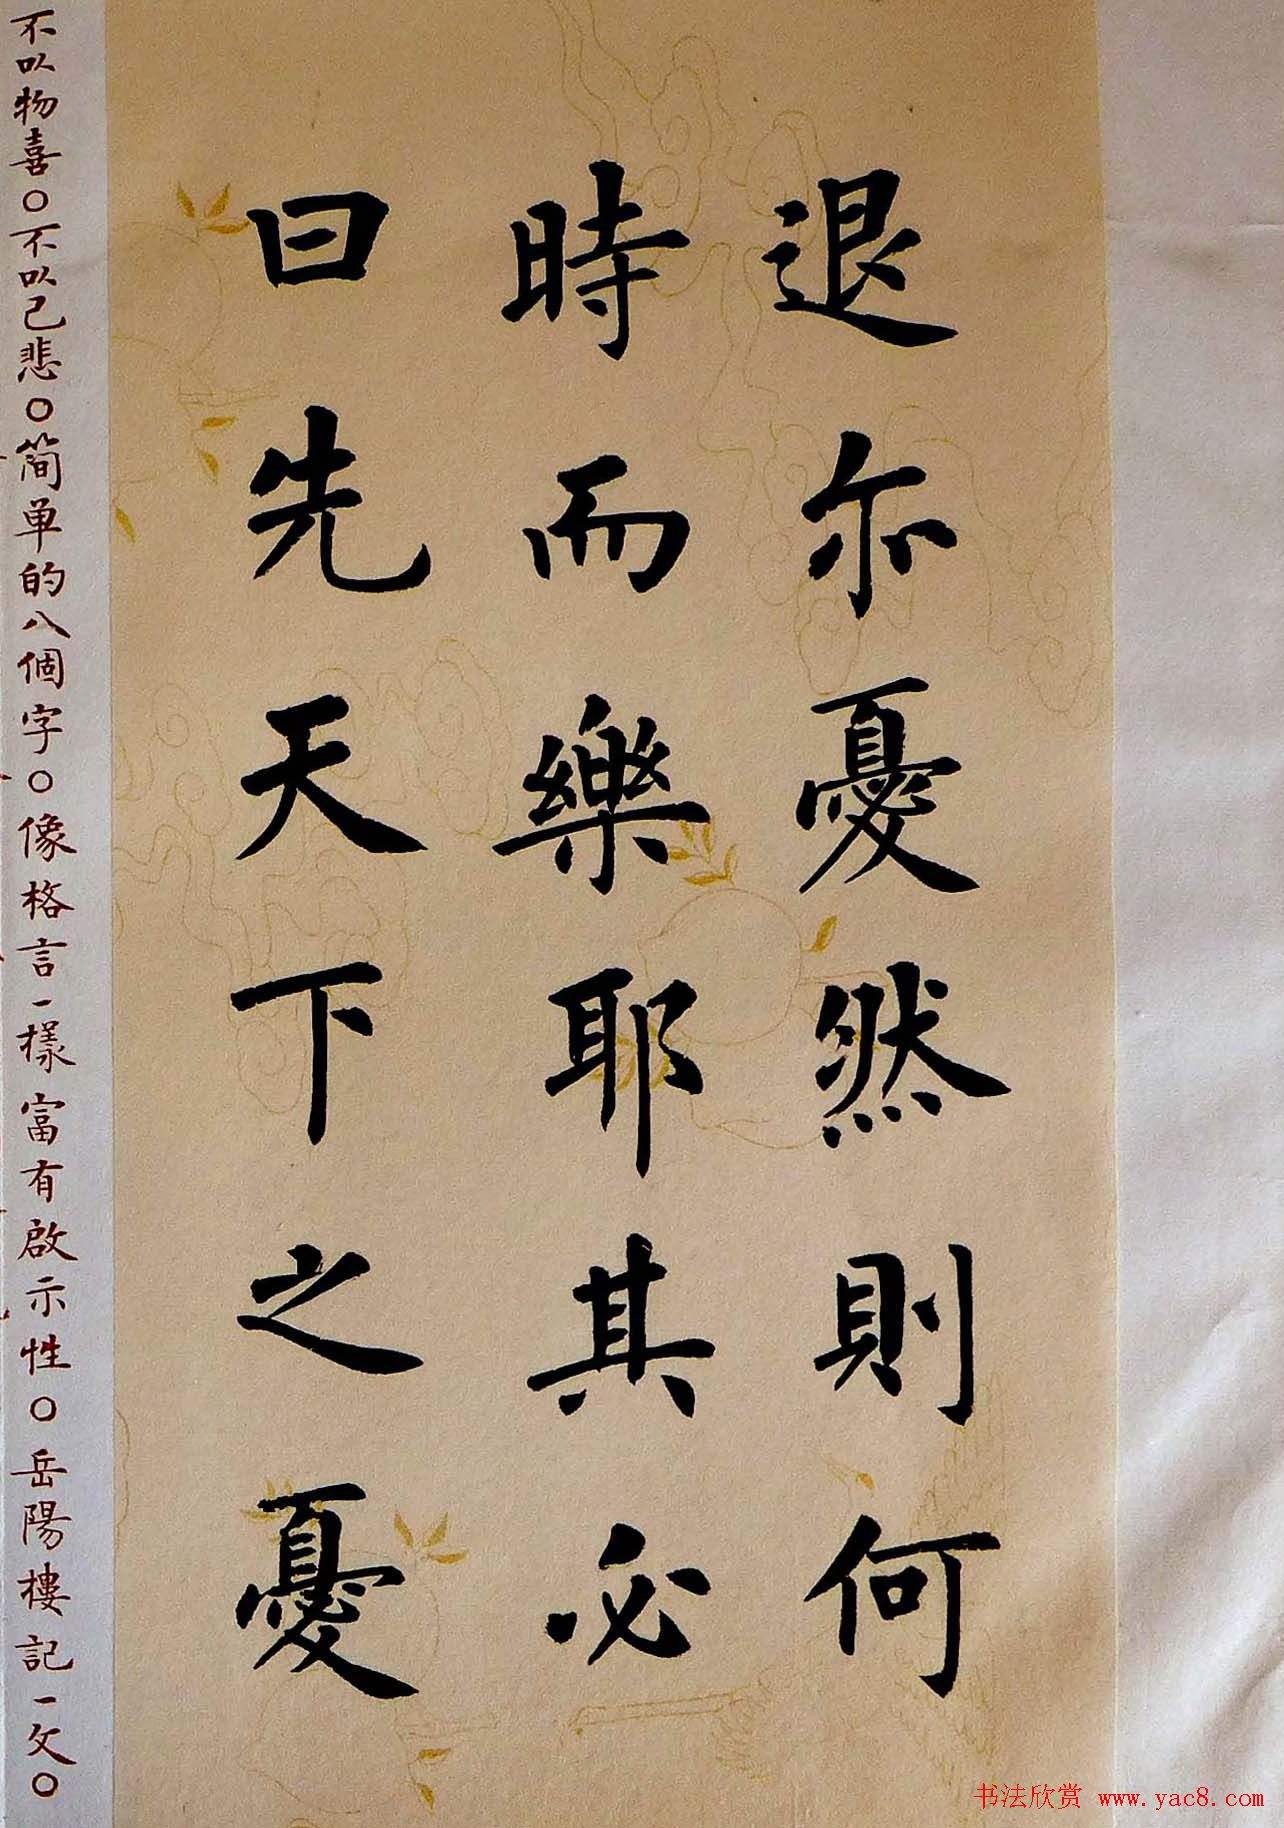 退亦憂然則何
時而樂耶其必
曰先天下之憂
不以物喜〇不以己悲〇简单的八個字〇像格言一樣富有啟示性〇岳陽樓記一文〇
书法欣赏 www.yac8.com